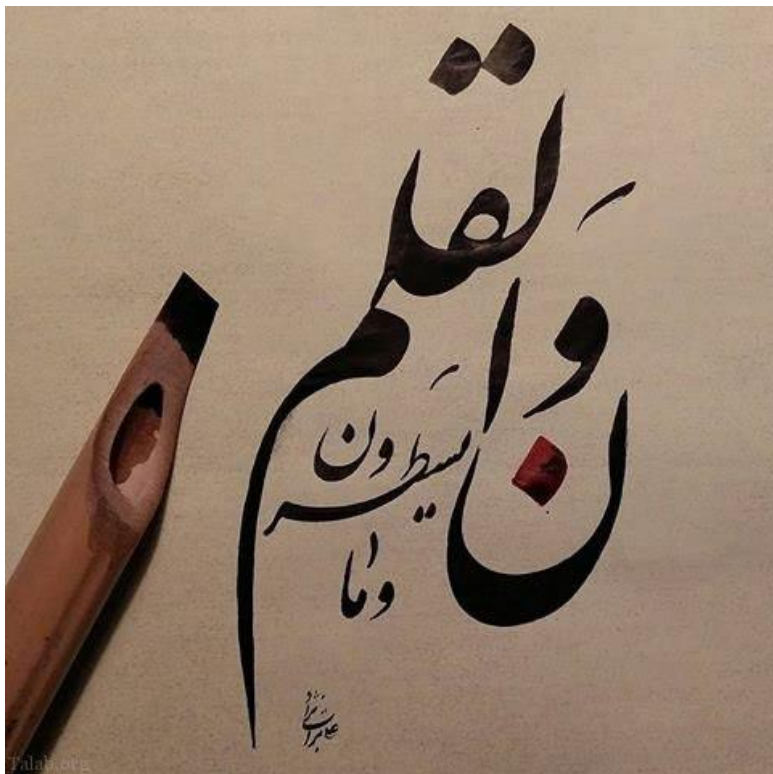 ن وَالقلم
وما
يسطرون
Talab.org